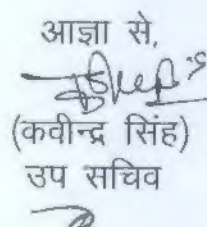 आज्ञा से,
(कवीन्द्र सिंह)
उप सचिव